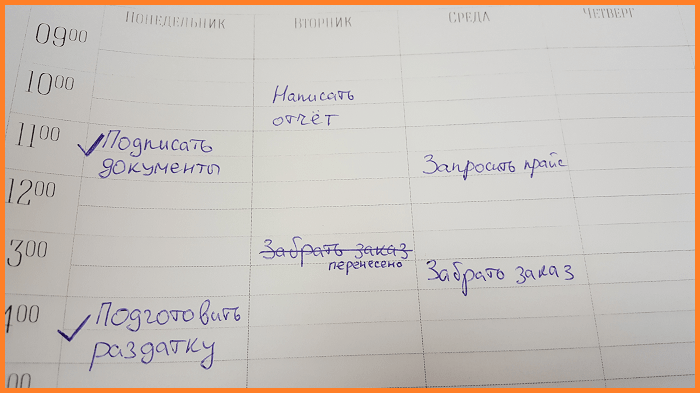 ПОНЕДЕЛЬНИК ВТОРНИК СРЕДА ЧЕТВЕРГ
09 00
10 00
Написать
отчёт
11 00
Подписать
документы
Запросить прайс
12 00
3 00
Забрать заказ
перенесено
Забрать заказ
00
Подготовить
раздатку
00